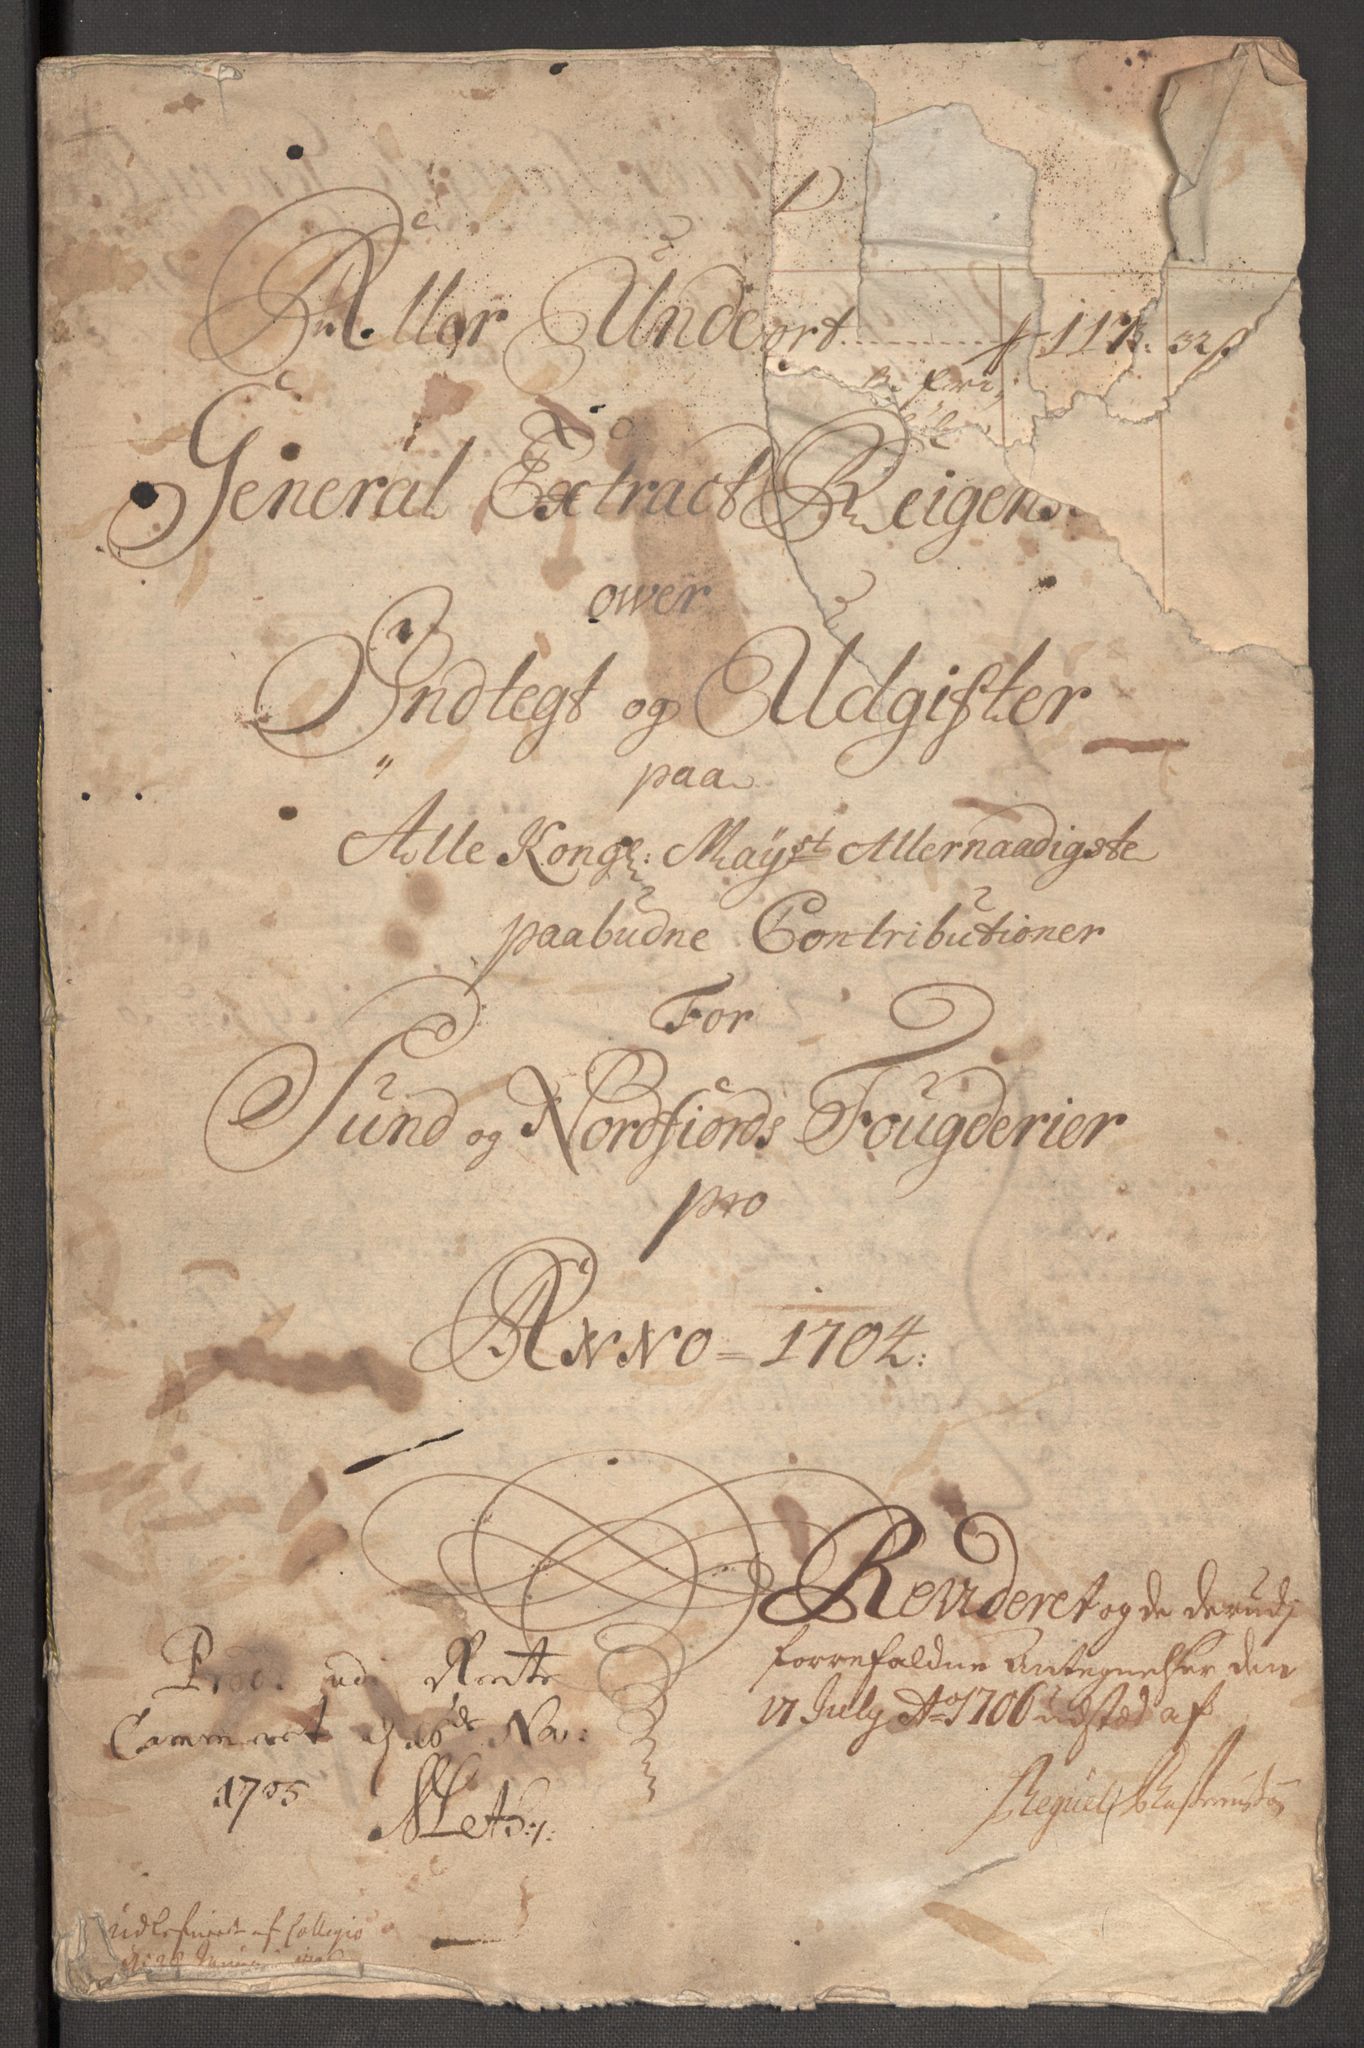 Aller Under
General Extract Reigens
ower
Indtegt og Udgifter
paa
Alle Kongl: Mayst Allernaadigste
paabudne Contributioner
For
Sund og Nordfiords Fougderier
pro
Anno = 1704:
Revideret og de derudj
forrefaldne Antegnelser den
17 July Ao 1706 udstæd af
Prod: udi Rente
Cammeret d. 16de Nov:
1705
ort 117: 32 ß
af Collegio